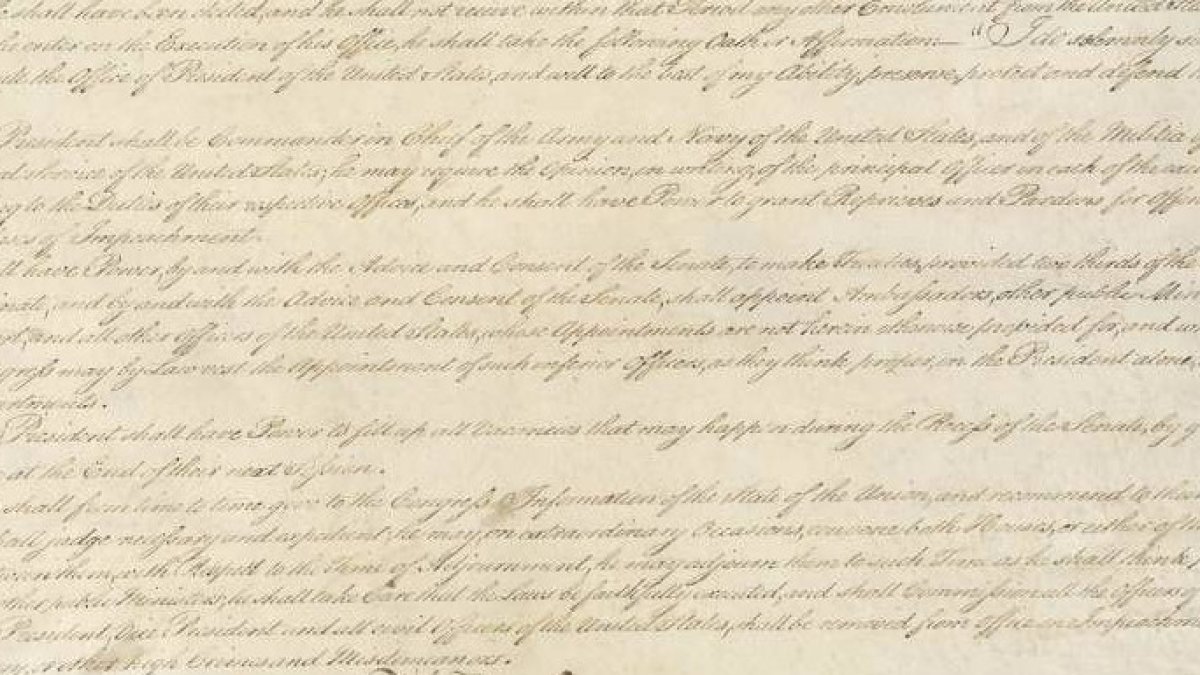 shall have been elected, and he shall not receive within that Period any other Emolument from the United Sta
he enter on the Execution of his Office, he shall take the following Oath or Affirmation:— "I do solemnly s
ute the Office of President of the United States, and will to the best of my Ability, preserve, protect and defend
President shall be Commander in Chief of the Army and Navy of the United States, and of the Militia
al Service of the United States; he may require the Opinion, in writing, of the principal Officer in each of the exe
g to the Duties of their respective Offices, and he shall have Power to grant Reprieves and Pardons for Offen
ses of Impeachment.
ll have Power, by and with the Advice and Consent of the Senate, to make Treaties, provided two thirds of the
nate, and by and with the Advice and Consent of the Senate, shall appoint Ambassadors, other public Min
rt, and all other Officers of the United States, whose Appointments are not herein otherwise provided for, and w
gress may by Law vest the Appointment of such inferior Officers, as they think proper, in the President alone,
artments.
President shall have Power to fill up all Vacancies that may happen during the Recess of the Senate, by g
at the End of their next Session.
shall from time to time give to the Congress Information of the State of the Union, and recommend to their
hall judge necessary and expedient; he may, on extraordinary Occasions, convene both Houses, or either of the
tween them, with Respect to the Time of Adjournment, he may adjourn them to such Time as he shall think
other public Ministers; he shall take Care that the Laws be faithfully executed, and shall Commission all the Officers of
President, Vice President and all civil Officers of the United States, shall be removed from Office on Impeachm
ry, or other high Crimes and Misdemeanors.